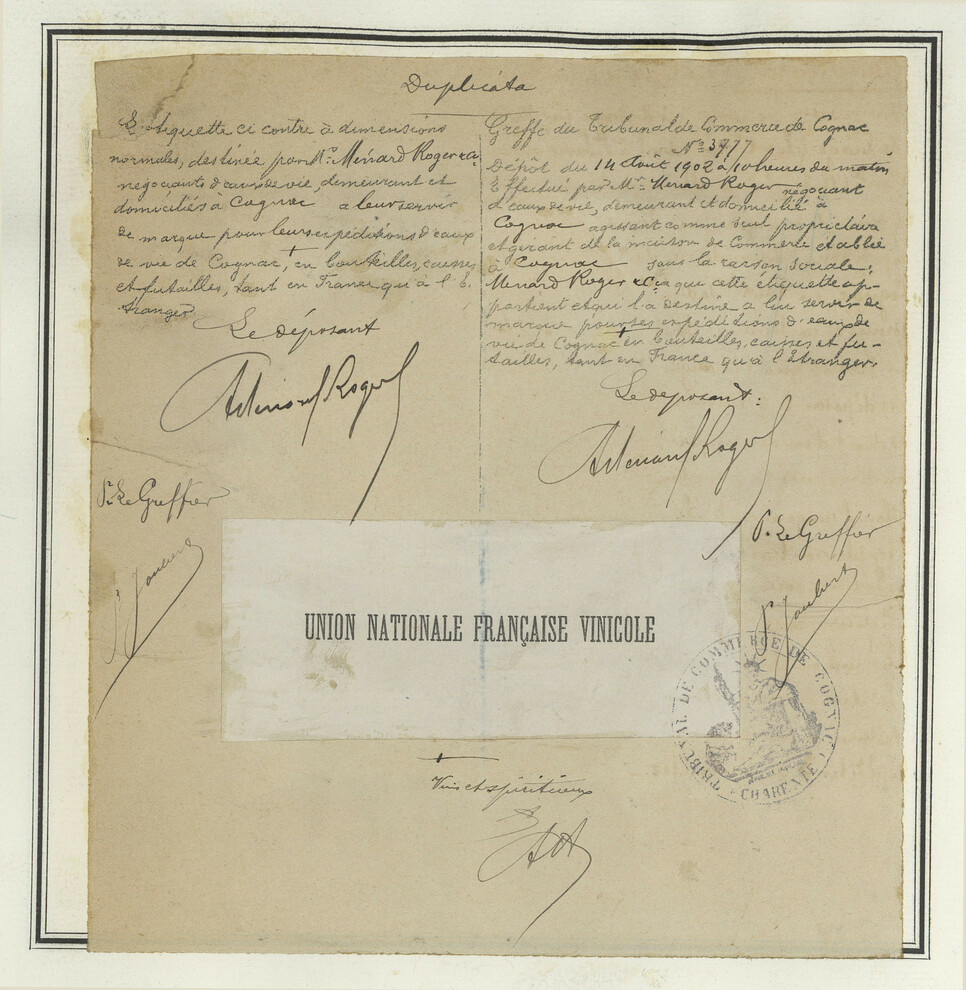 Duplicata
L'étiquette ci contre à dimensions
normales, destinée par Mrs Ménard Roger & Cie
négociants d'eaux de vie, demeurant et
domiciliés à Cognac a leur servir
de marque pour leurs expéditions d'eaux
de vie de Cognac, + en bouteilles, caisses
et futailles, tant en France qu'à l'é-
tranger
Le déposant
P. Le Greffier
Greffe du Tribunal de Commerce de Cognac
No 3777
Dépôt du 14 Août 1902 à 10 heures du matin
Effectué par Mr Menard Roger négociant
d'eaux de vie, demeurant et domicilié à
Cognac agissant comme seul propriétaire
et gérant de la maison de Commerce établie
à Cognac sous la raison sociale:
Menard Roger & Cie que cette étiquette ap-
partient et qu'il a destine a lui servir de
marque pour ses expéditions d'eaux de
vie de Cognac + en bouteilles, caisses et fu-
tailles, tant en France qu'à l'étranger.
Le déposant:
P. Le Greffier
UNION NATIONALE FRANÇAISE VINICOLE
TRIBUNAL DE COMMERCE DE COGNAC
CHARENTE
+ Vins et spiritueux